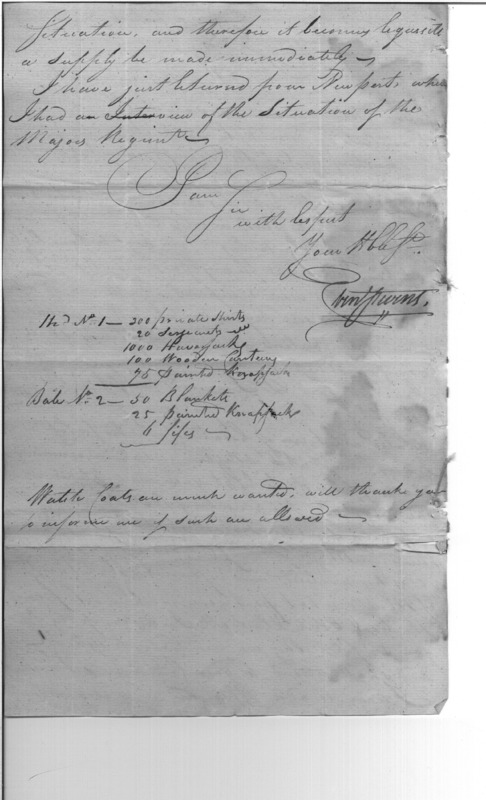 Situation, and therefore it becomes requisite
a supply be made immediately —
I have just returned from Newport, where
I had an Interview of the Situation of the
Majors Regimt —
I am
Sir
with respect
Your Hble St.
Hhd No. 1 — 200 private Shirts
20 Sergeants do
1000 Haversacks
100 Wooden Canteens
75 painted Knapsacks
Bale No. 2 — 50 Blankets
25 painted Knapsacks
6 fifes —
Watch Coats are much wanted, will thank you
to inform me if such are allowed —